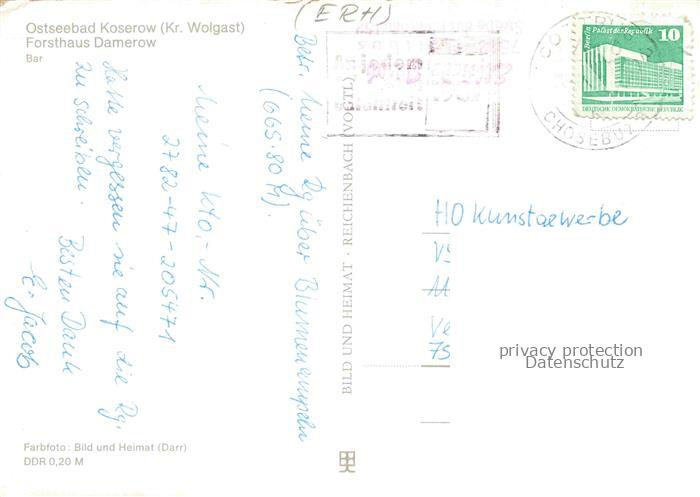 (ERH)
Ostseebad Koserow (Kr. Wolgast)
Forsthaus Damerow
Bar
Betr. Meine Rg über Blumenampeln
(665.80 M).
Meine Kto.-Nr.
2782-47-205471
Hatte vergessen sie auf die Rg.
zu schreiben.
Besten Dank
E. Jacob
Farbfoto: Bild und Heimat (Darr)
DDR 0,20 M
BILD UND HEIMAT · REICHENBACH (VOGTL)
Berlin Palast der Republik
10
DEUTSCHE DEMOKRATISCHE REPUBLIK
COTTBUS
CHOSEBUZ
HO Kunstgewerbe
Ve
75
privacy protection
Datenschutz